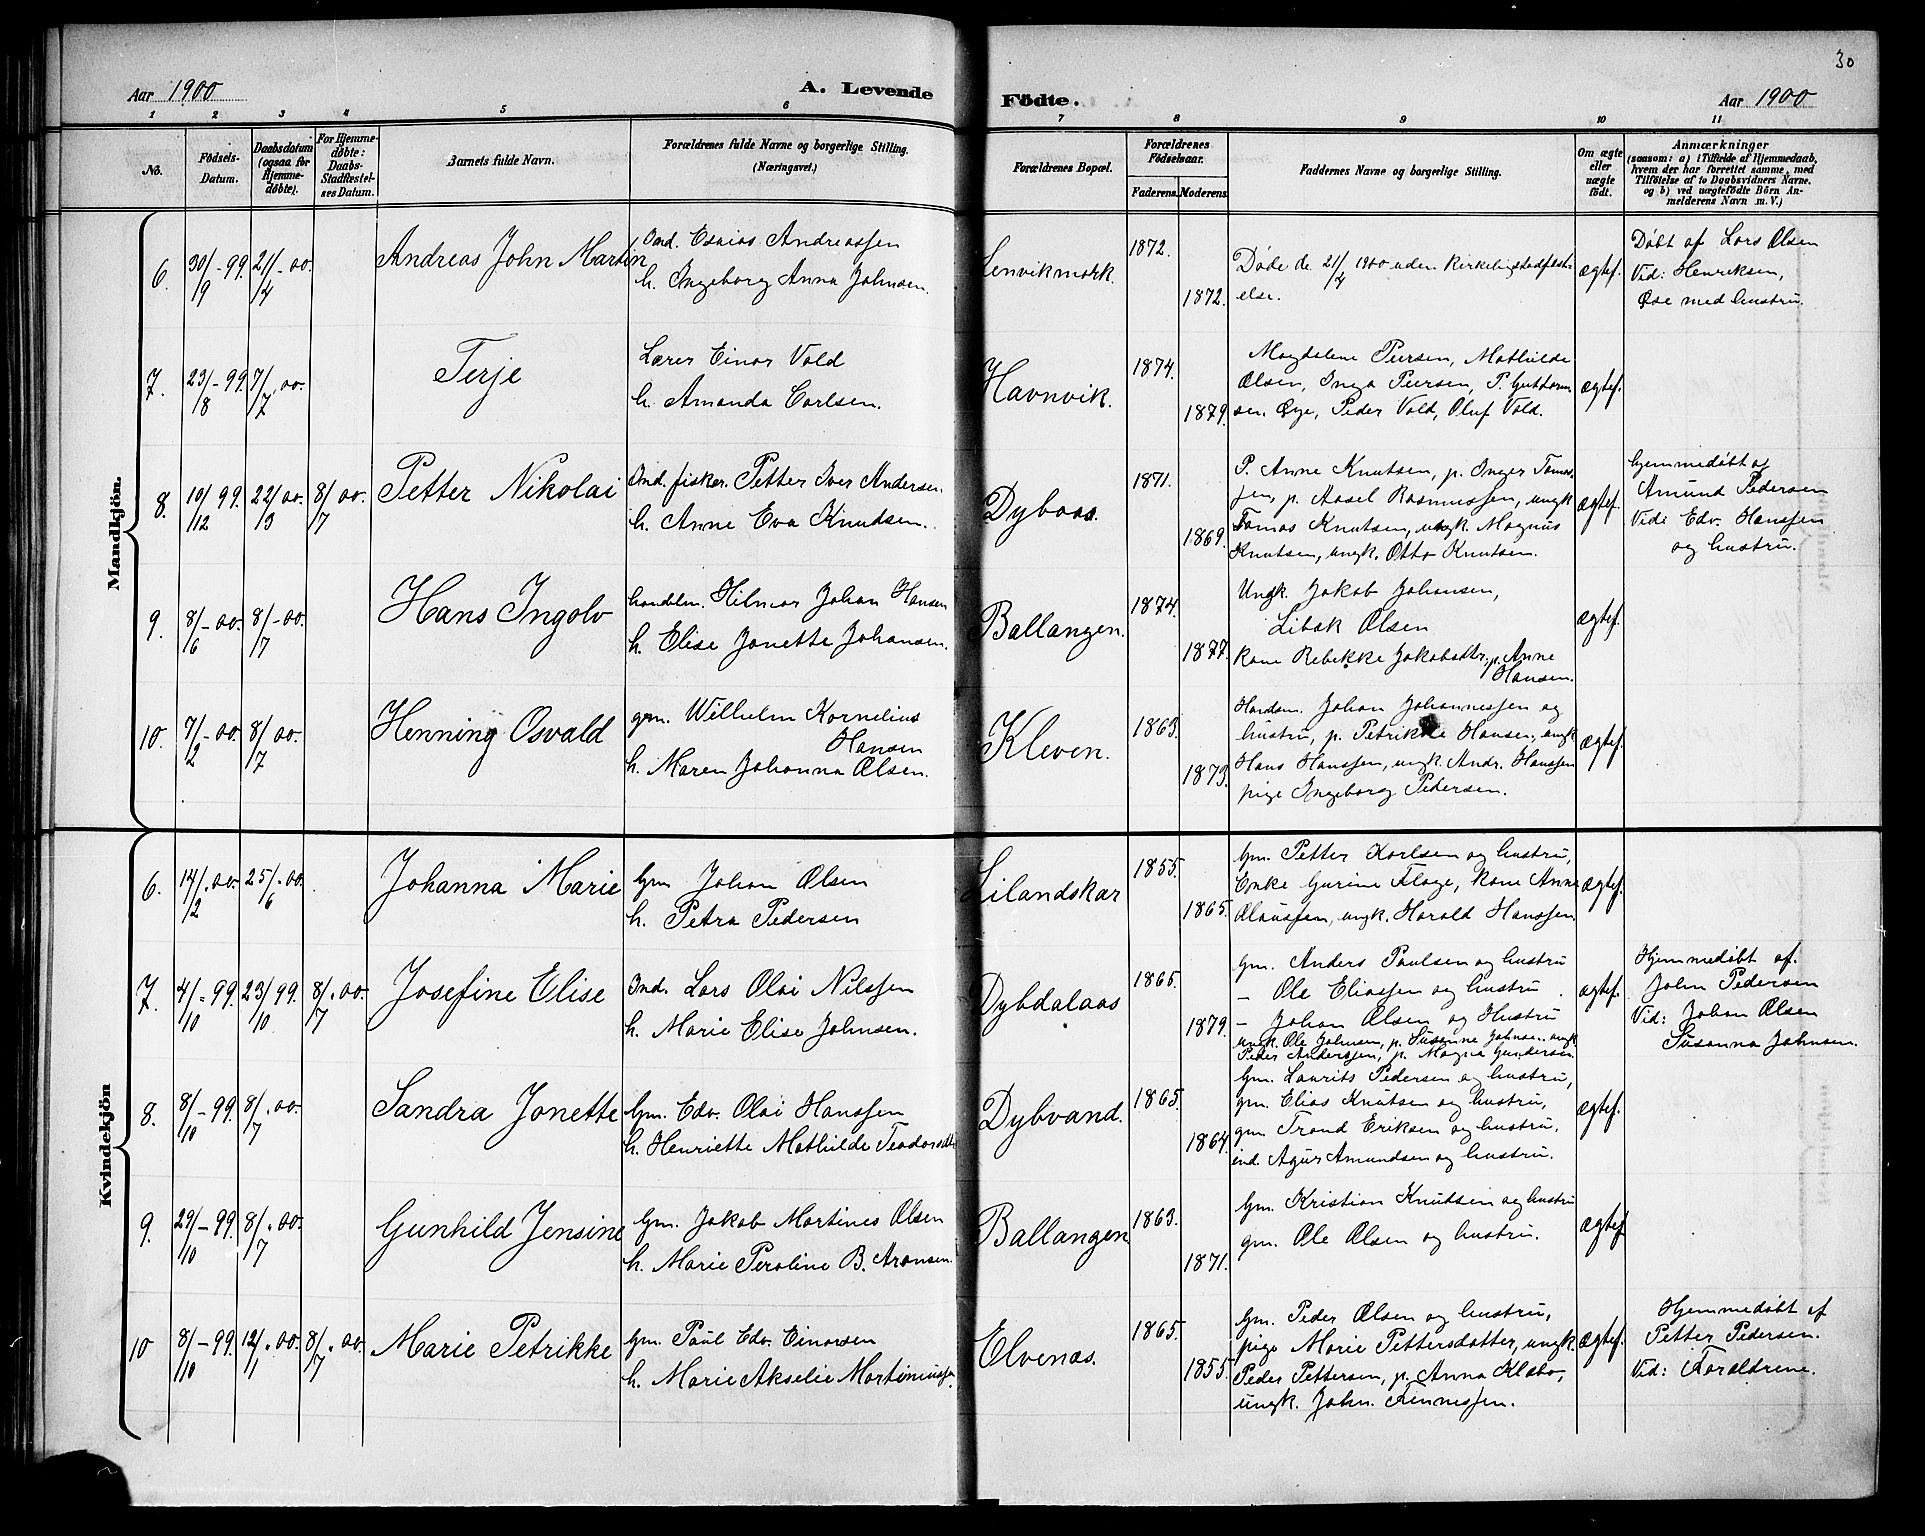 30
Aar 1900
A. Levende
Födte.
Aar 1900
1 2 3 4 5 6 7 8 9 10 11
No.
Födsels-
Datum.
Daabsdatum
(ogsaa for
Hjemme-
döbte).
For Hjemme-
döbte:
Daabs-
Stadfæstel-
ses Datum.
Barnets fulde Navn.
Forældrenes fulde Navne og borgerlige Stilling.
(Næringsvei.)
Forældrenes Bopæl.
Forældrenes
Födselsaar.
Faderens. Moderens.
Faddernes Navne og borgerlige Stilling.
Om ægte
eller
uægte
födt.
Anmærkninger
(saasom: a) i Tilfælde af Hjemmedaab,
hvem der har forrettet samme, med
Tilföielse af to Daabsvidners Navne,
og b) ved uægtefödte Börn An-
melderens Navn m. V.)
Mandkjön.
6. 30/9-99. 21/4-00.
Andreas John Martin
Ind. Esaias Andreassen
h. Ingeborg Anna Johnsen.
Lenvikmark.
1872.
1872.
Døde d. 21/4 1900 uden Kirkelig stadfæst-
else.
ægtef.
Døbt af Lars Olsen
Vid: Henriksen,
Øse med hustru.
7. 23/8-99. 7/7 00.
Terje
Lærer Einar Vold
h. Amanda Carlsen.
Havnvik.
1874.
1879.
Magdalene Persen, Mathilde
Olsen, Inga Persen, P. Guttorm-
sen. Øye, Peder Vold, Oluf Vold.
ægtef.
8. 10/12 99. 22/3 00. 8/7 00.
Petter Nikolai
Ind. fisker. Petter Iver Andersen.
h. Anne Eva Knudsen.
Dybaas.
1871.
1869.
P. Anne Knutsen, p. Inger Tomas-
sen, p. Aasel Rasmussen, ungk
Tomas Knutsen, ungk. Magnus
Knutsen, ungk. Otto Knutsen.
ægtef.
hjemmedøbt af
Amund Pedersen
Vidi Edv. Hanssen
og hustru.
9. 8/6-00. 8/7-00.
Hans Ingolv
handelm. Hilmar Johan Hansen
h. Elise Jonette Johansen.
Ballangen.
1874.
1877.
Ungk. Jakob Johansen,
Libæk Olsen
kone Rebekke Jakobsdtr, p. Anne
Hansen.
ægtef.
10. 7/2-00. 8/7 00.
Henning Osvald
grm. Wilhelm Kornelius
Hansen
h. Maren Johanna Olsen.
Kleven.
1863.
1873.
Handm. Johan Johannessen og
hustru, p. Petrikke Hansen, ungk
Hans Hanssen, ungk. Andr. Hanssen
pige Ingeborg Pedersen.
ægtef.
Kvindekjön
6. 14/2.00. 25/6.00.
Johanna Marie
Gm Johan Olsen
h. Petra Pedersen
Lilandskar
1855.
1865.
Gm. Petter Karlsen og hustru,
Enke Gurine Floge, kone Anne
Olaussen, ungk. Harald Hanssen
ægtef.
7. 4/10-99. 23/10 99. 8/7.00.
Josefine Elise
Ind. Lars Olai Nilssen
h. Marie Elise Johnsen.
Dybdalaas
1865.
1879.
Gm. Anders Paulsen og hustru
— Ole Eliassen og hustru
— Johan Olsen og Hustru
ungk. Ole Johnsen, p. Susanne Johnsen, ungk
Peder Anderssen, p. Magna Gundersen
ægtef.
Hjemmedøbt af.
John Pedersen
Vid: Johan Olsen
Susanna Johnsen.
8. 8/10-99. 8/7.00.
Sandra Jonette
Gm. Edv. Olai Hanssen
h. Henriette Mathilde Teodorsdtr
Dybvand.
1865.
1864.
Gm. Laurits Pedersen og hustru,
gm. Elias Knutsen og hustru,
gm Trond Eriksen og hustru,
ind. Agur Amundsen og hustru.
ægtef.
9. 29/10-99. 8/7.00.
Gunhild Jensine
Gm. Jakob Martines Olsen
h. Marie Peroline B. Aronsen.
Ballangen
1863.
1871.
Gm. Kristian Knutsen og hustru
gm. Ole Olsen og hustru.
ægtef
10 8/10-99. 12/1.00. 8/7.00.
Marie Petrikke
Gm. Paul Edv. Einarsen
h. Marie Akselie Martinussn.
Elvenas.
1865.
1855.
Gm. Peder Olsen og hustru,
pige Marie Pettersdatter, ungk.
Peder Pettersen, p. Anna Klæbo,
ungk. John. Finnessen.
ægtef.
Hjemmedøbt af
Petter Pedersen.
Vid: Forældrene.